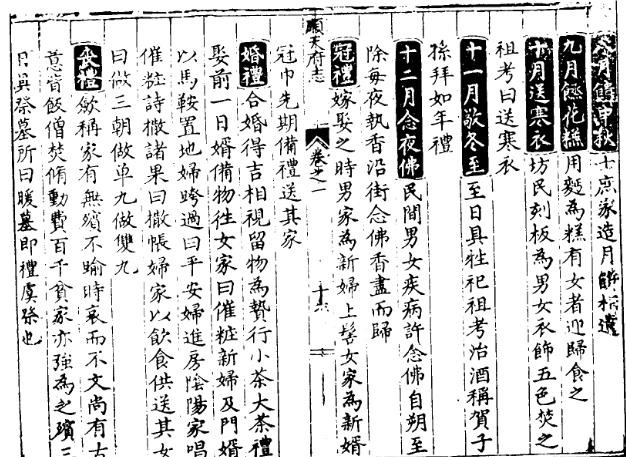 八月餅中秋士庶家造月餅相遺
九月餻花糕用麫為糕有女者迎歸食之
十月送寒衣坊民刻板為男女衣飾五色焚之
祖考曰送寒衣
十一月敬冬至至日具牲祀祖考治酒稱賀子
孫拜如年禮
十二月念夜佛民間男女疾病許念佛自朔至
除每夜執香沿街念佛香盡而歸
冠禮嫁娶之時男家為新婦上髻女家為新婿
冠巾先期備禮送其家
順天府志 卷之一 十六
婚禮合婚得吉相視留物為贄行小茶大茶禮
娶前一日婿備物往女家曰催粧新婦及門婿
以馬鞍置地婦跨過曰平安婦進房陰陽家唱
催粧詩撒諸果曰撒帳婦家以飲食供送其女
曰做三朝做单九做雙九
喪禮斂稱家有無殯不踰時哀而不文尚有古
意皆飯僧焚脩動費百千貧家亦強為之殯三
日具祭墓所曰暖墓即禮虞祭也